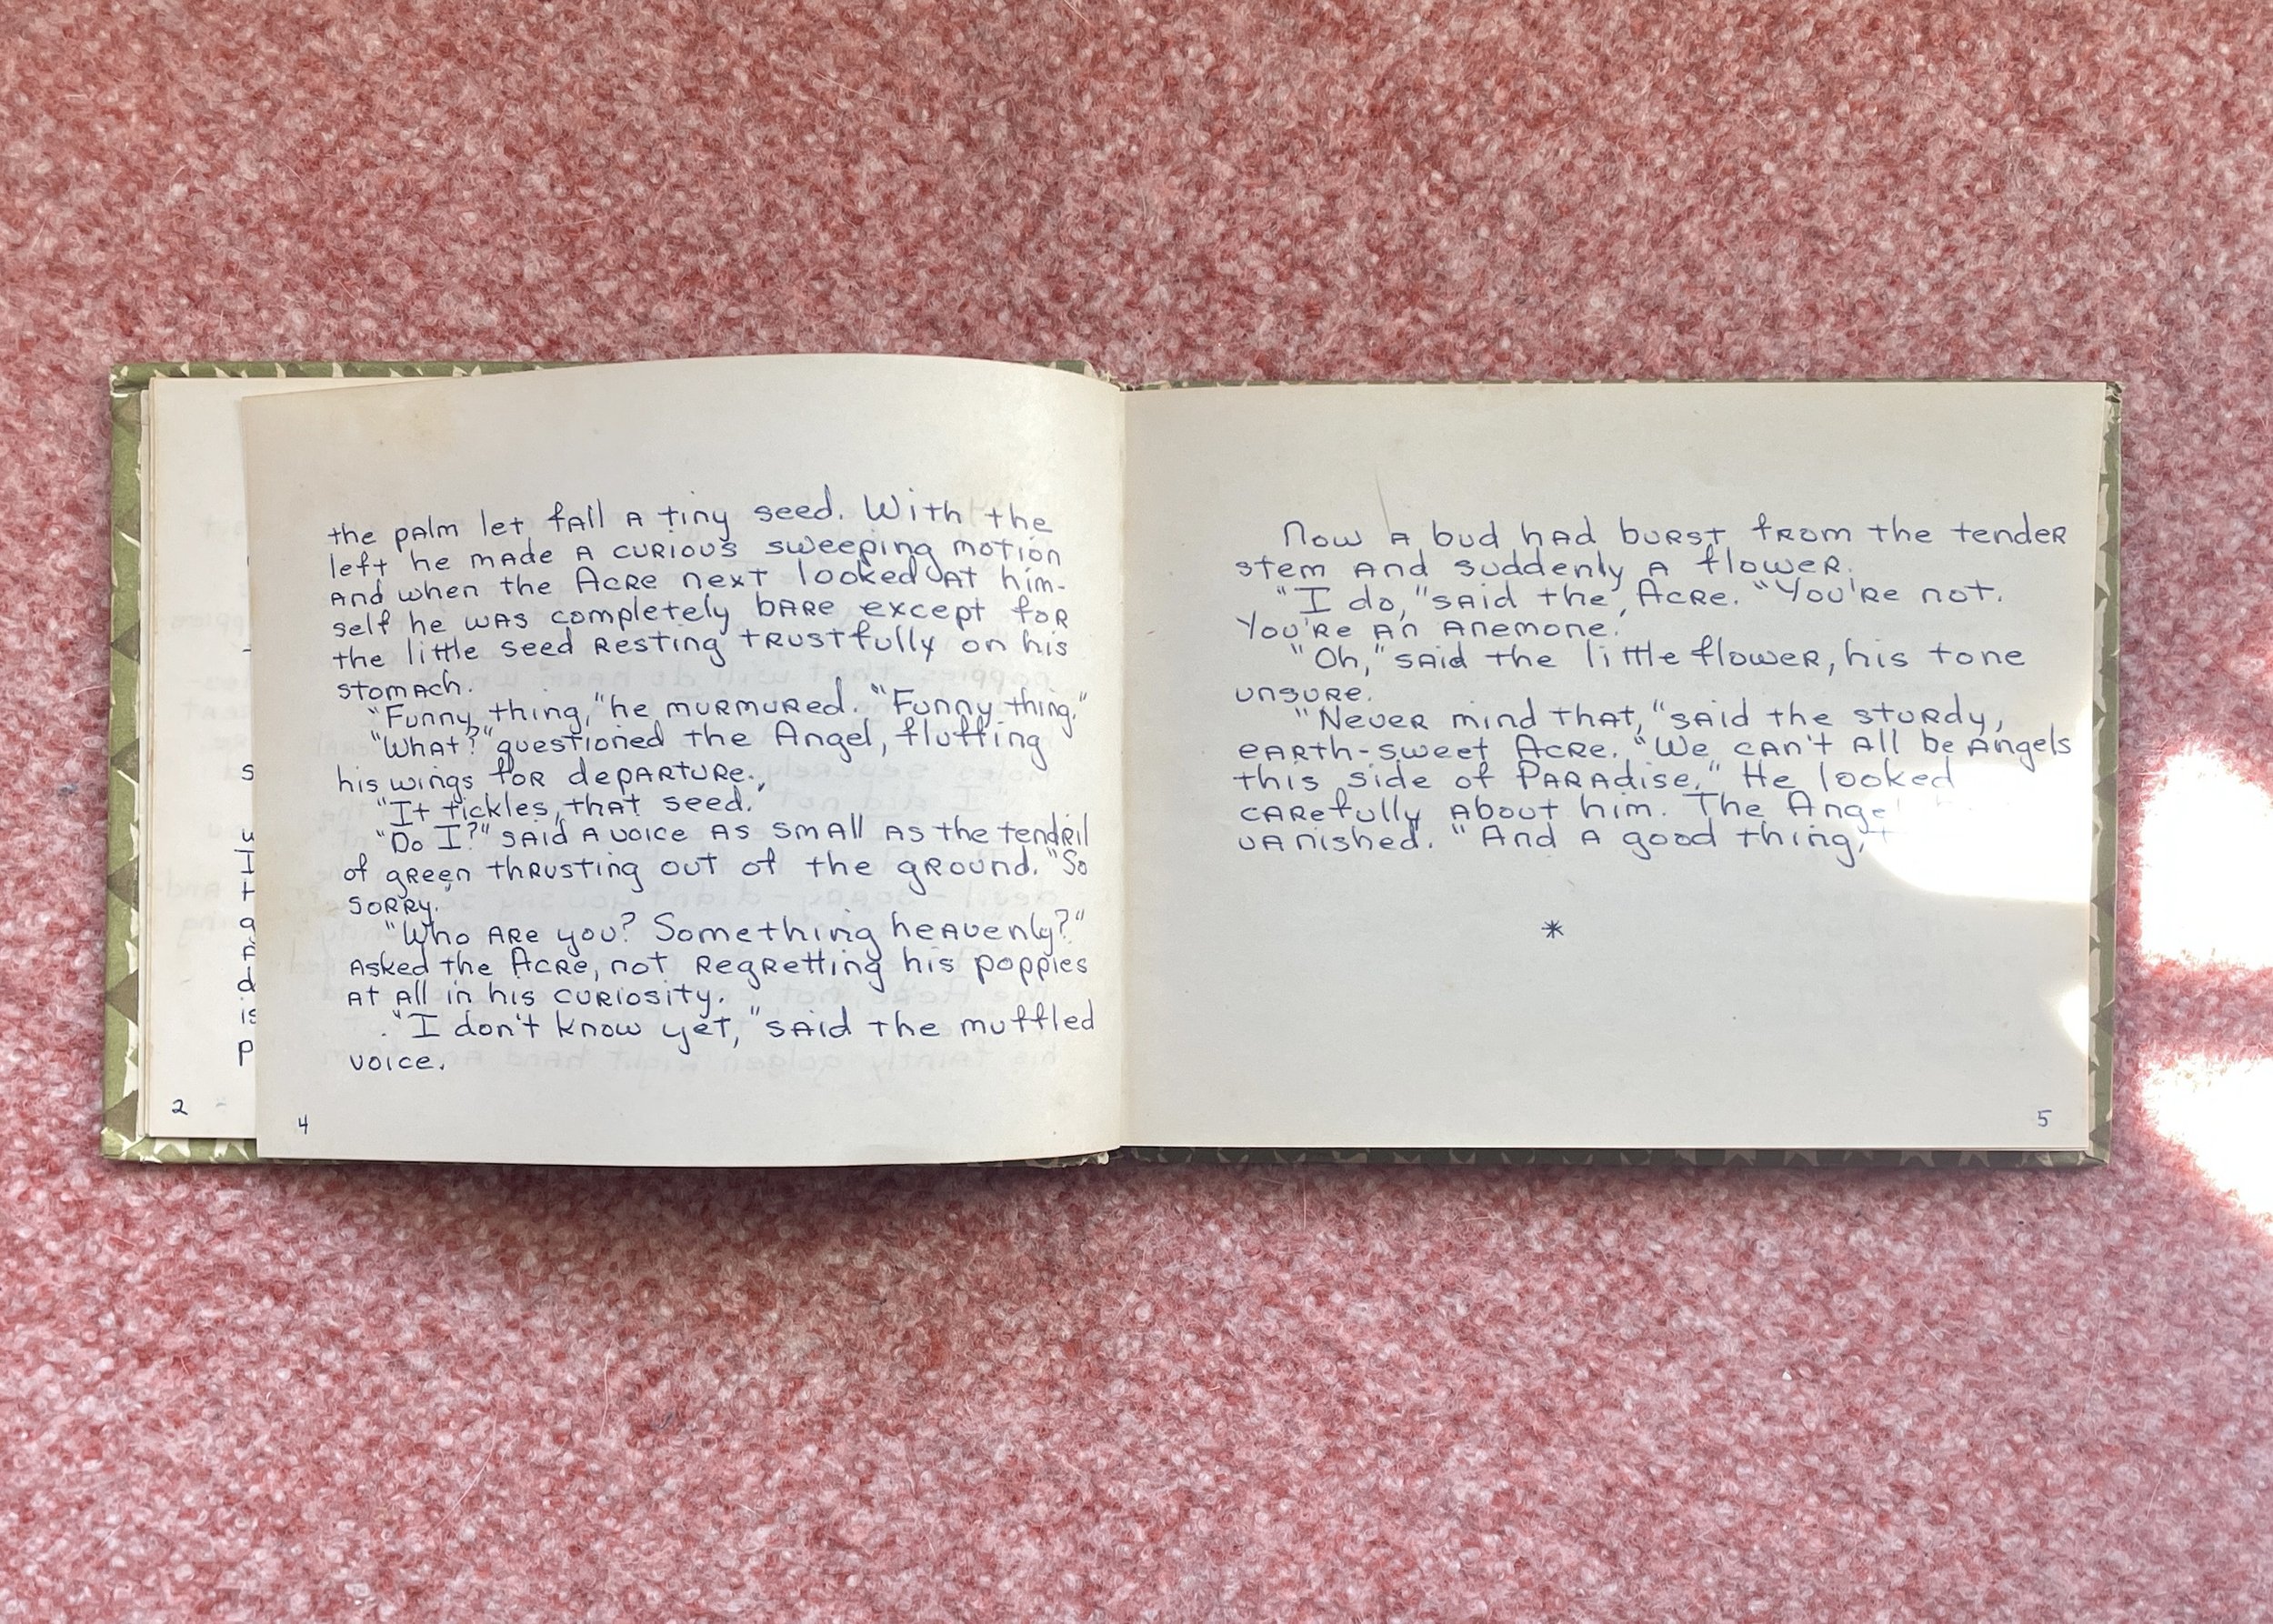 the palm let fall a tiny seed. With the
left he made a curious sweeping motion
and when the Acre next looked at him-
self he was completely bare except for
the little seed resting trustfully on his
stomach.
"Funny thing," he murmured. "Funny thing."
"What?" questioned the Angel, fluffing
his wings for departure.
"It tickles, that seed."
"Do I?" said a voice as small as the tendril
of green thrusting out of the ground. "So
sorry."
"Who are you? Something heavenly?"
asked the Acre, not regretting his poppies
at all in his curiosity.
"I don't know yet," said the muffled
voice.
4
2
s
u
I
t
g
d
is
p
Now a bud had burst from the tender
stem and suddenly a flower.
"I do," said the Acre. "You're not.
You're an anemone."
"Oh," said the little flower, his tone
unsure.
"Never mind that," said the sturdy,
earth-sweet Acre. "We can't all be Angels
this side of Paradise." He looked
carefully about him. The
vanished. "And a good thing,
*
5